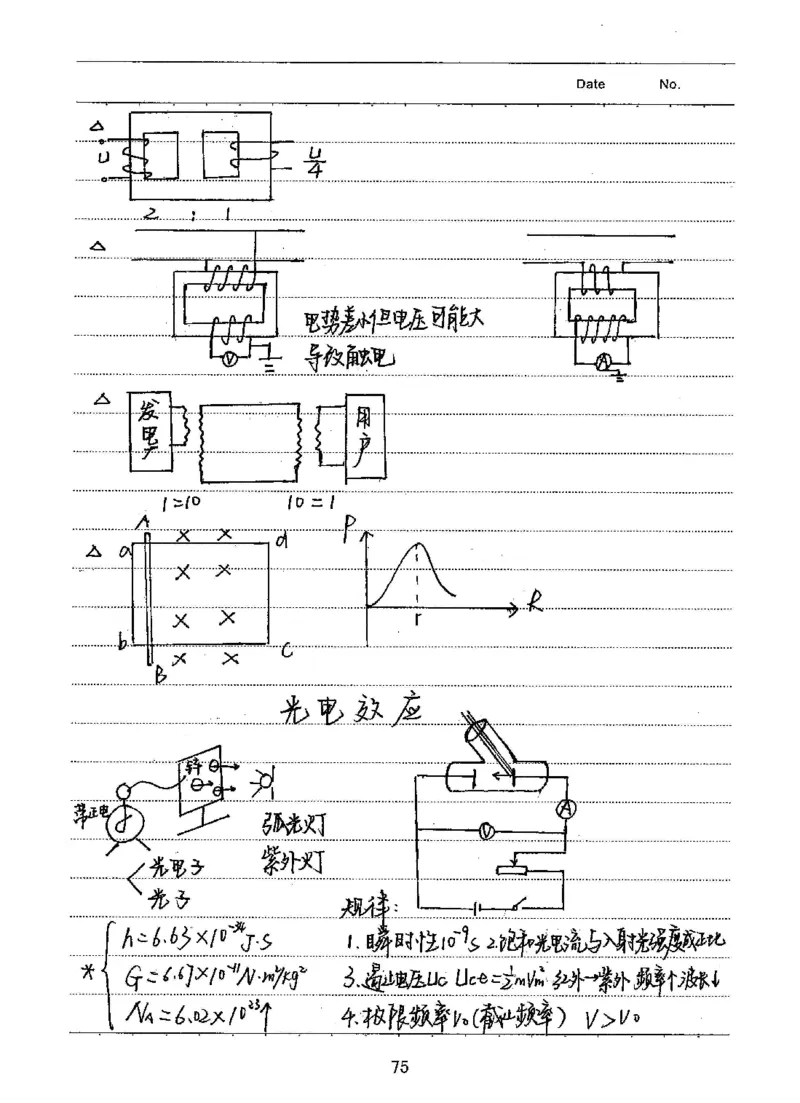 Date No.
△
U U/4
2 : 1
△
电势差小但电压可能大
导致触电
V A
△
发电厂 用户
1:10 10:1
△ A a d P
r R
b B C
光电效应
锌
带正电
弧光灯
紫外灯
光电子
光子
A
V
规律:
* h=6.63×10⁻³⁴J·s
G=6.67×10⁻¹¹N·m²/kg²
N_A=6.02×10²³个
1.瞬时性10⁻⁹s 2.饱和光电流与入射光强度成正比
3.遏止电压Uc Uce=½mVm² 红外→紫外 频率↑波长↓
4.极限频率ν₀(截止频率) ν>ν₀
75